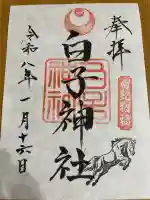 奉拝
白子神社
令和八年一月十六日